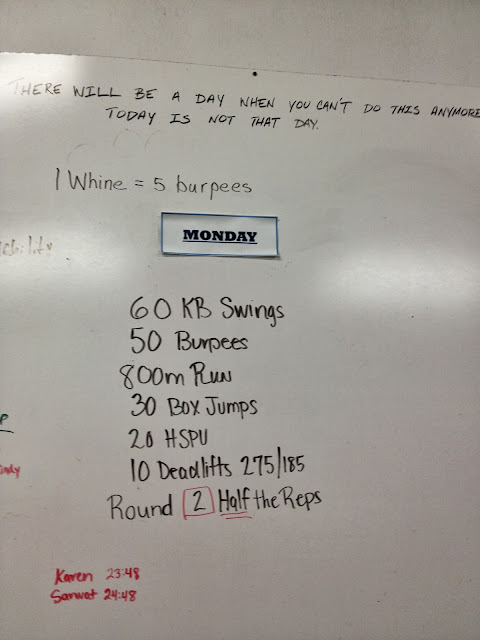 THERE WILL BE A DAY WHEN YOU CAN'T DO THIS ANYMORE
TODAY IS NOT THAT DAY.
1 Whine = 5 burpees
MONDAY
60 KB Swings
50 Burpees
800m Run
30 Box Jumps
20 HSPU
10 Deadlifts 275/185
Round 2 Half the Reps
Karen 23:48
Sanwat 24:48